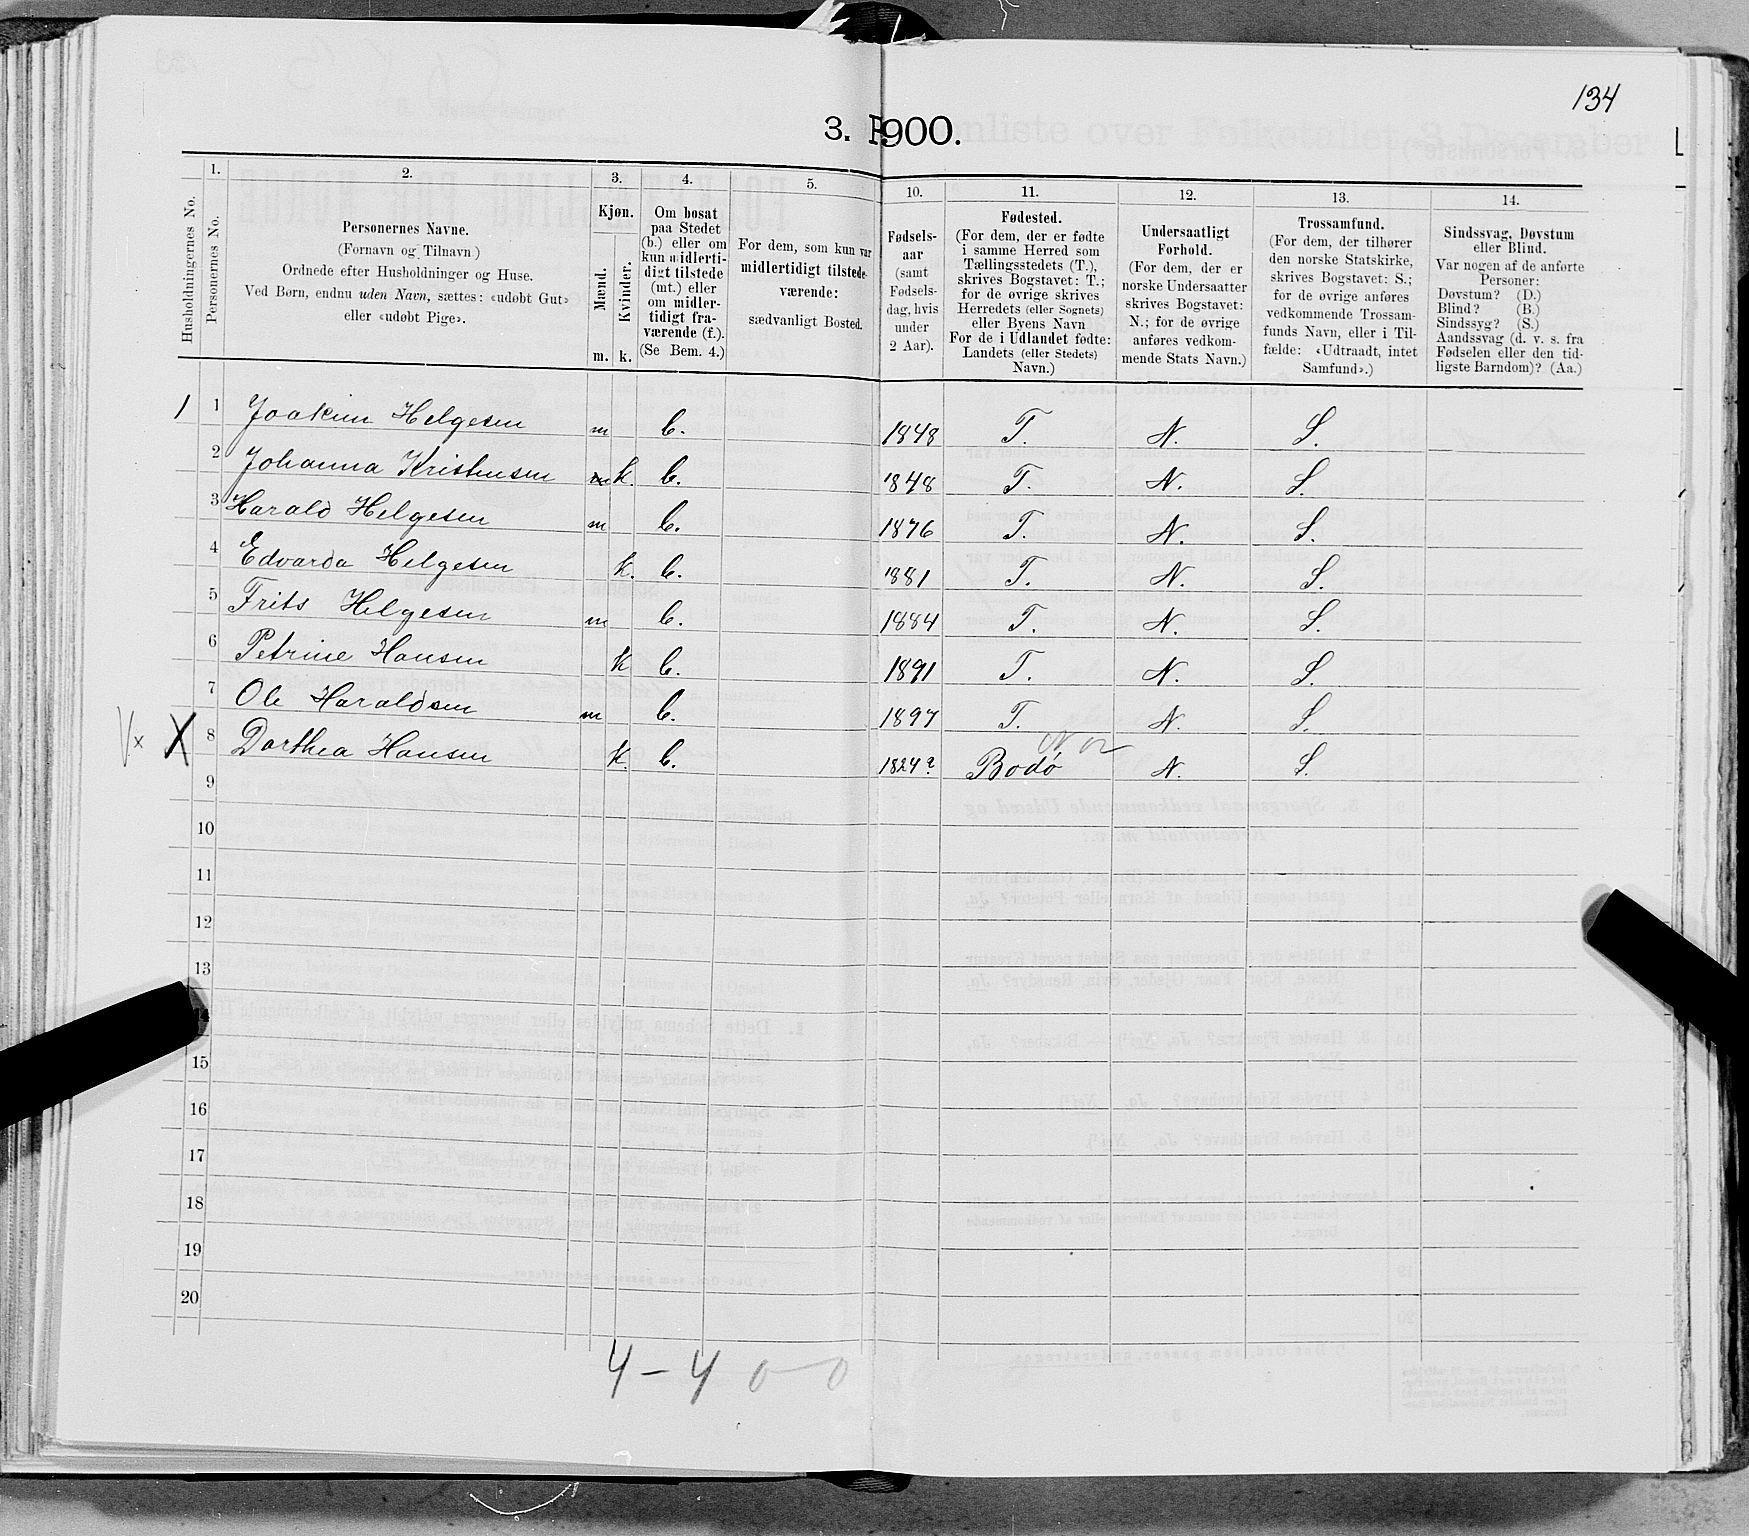 134
3. P
900.
Husholdningernes No.
1.
Personernes No.
2.
Personernes Navne.
(Fornavn og Tilnavn.)
Ordnede efter Husholdninger og Huse.
Ved Børn, endnu uden Navn, sættes: «udøbt Gut»
eller «udøbt Pige».
3.
Kjøn.
Mænd.
Kvinder.
m. k.
4.
Om bosat
paa Stedet
(b.) eller om
kun midlerti-
digt tilstede
(mt.) eller
om midler-
tidigt fra-
værende (f.).
(Se Bem. 4.)
5.
For dem, som kun var
midlertidigt tilstede-
værende:
sædvanligt Bosted.
10.
Fødsels-
aar
(samt
Fødsels-
dag, hvis
under
2 Aar).
11.
Fødested.
(For dem, der er fødte
i samme Herred som
Tællingsstedets (T.),
skrives Bogstavet: T.;
for de øvrige skrives
Herredets (eller Sognets)
eller Byens Navn
For de i Udlandet fødte:
Landets (eller Stedets)
Navn.)
12.
Undersaatligt
Forhold.
(For dem, der er
norske Undersaatter
skrives Bogstavet:
N.; for de øvrige
anføres vedkom-
mende Stats Navn.)
13.
Trossamfund.
(For dem, der tilhører
den norske Statskirke,
skrives Bogstavet: S.;
for de øvrige anføres
vedkommende Trossam-
funds Navn, eller i Til-
fælde: «Udtraadt, intet
Samfund».)
14.
Sindssvag, Døvstum
eller Blind.
Var nogen af de anførte
Personer:
Døvstum? (D.)
Blind? (B.)
Sindssyg? (S.)
Aandssvag (d. v. s. fra
Fødselen eller den tid-
ligste Barndom)? (Aa.)
1 1 Joakim Helgesen m b. 1848 T. N. S.
2 Johanna Kristensen m k. b. 1848 T. N. S.
3 Harald Helgesen m b. 1876 T. N. S.
4 Edvarda Helgesen k. b. 1881 T. N. S.
5 Frits Helgesen m b. 1884 T. N. S.
6 Petrine Hansen k b. 1891 T. N. S.
7 Ole Haraldsen m b. 1897 T. N. S.
X 8 Dorthea Hansen k. b. 1824? Bodø N. S.
9
10
11
12
13
14
15
16
17
18
19
20
4 - 4 0 - 0